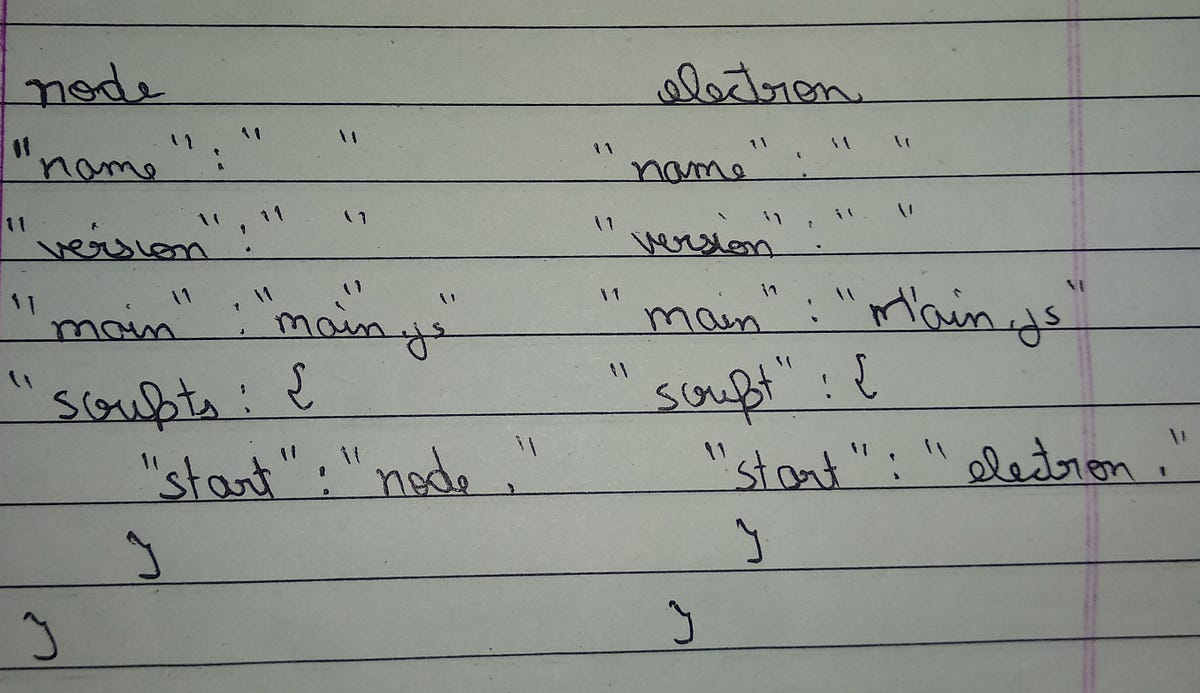 node electron
"name" : " " "name" : " "
"version" : " " "version" : " "
"main" : "main.js" "main" : "Main.js"
"scripts : { "script" : {
"start" : "node ." "start" : "electron ."
} }
} }